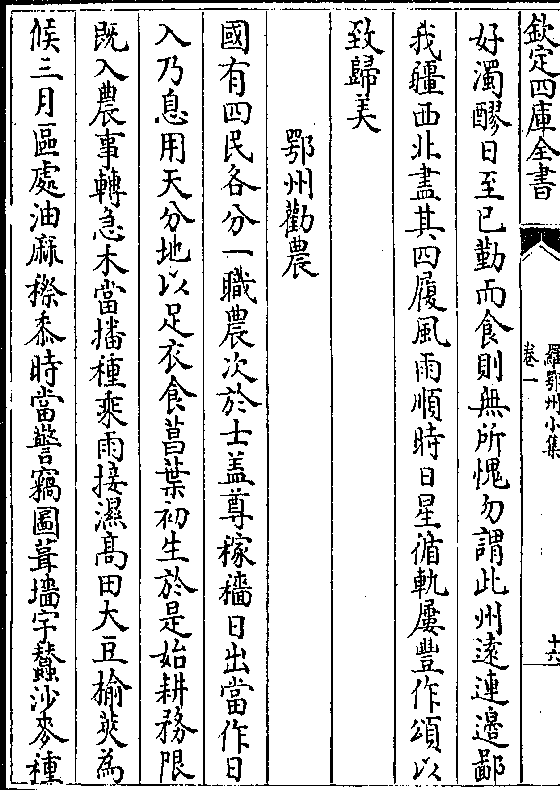 欽定四庫全書
羅鄂州小集
卷一
十六
好濁醪日至已勤而食則無所愧勿謂此州遠連邊鄙
我疆西北盡其四履風雨順時日星循軌屢豐作頌以
致歸美
鄂州勸農
國有四民各分一職農次於士盖尊稼穡日出當作日
入乃息用天分地以足衣食菖葉初生於是始耕務限
既入農事轉急木當播種乘雨接濕髙田大豆榆莢為
候三月區處油麻穄黍時當警竊圖葺墻宇蠶沙麥種